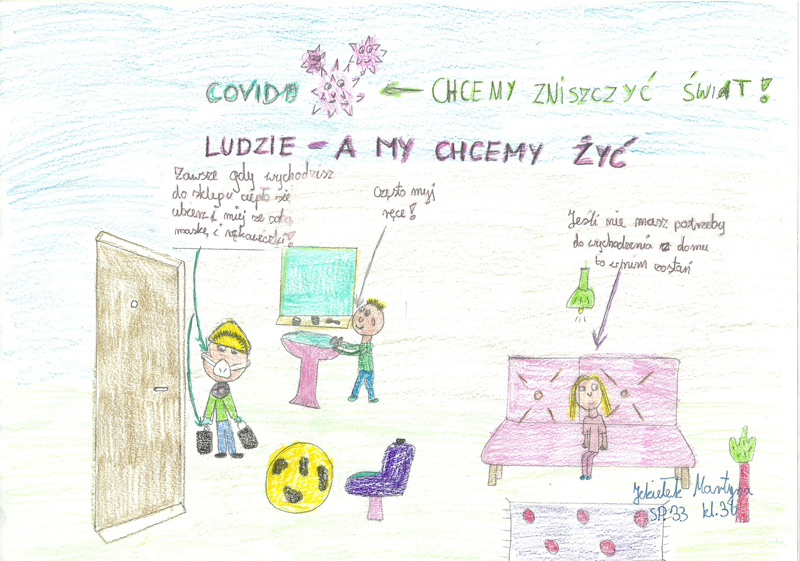 COVID ← CHCEMY ZNISZCZYĆ ŚWIAT!
LUDZIE - A MY CHCEMY ŻYĆ
Zawsze gdy wychodzisz
do sklepu ciepło się
ubierz i miej ze sobą
maskę i rękawiczki!
Często myj
ręce!
Jeśli nie masz potrzeby
do wychodzenia z domu
to w nim zostań
Martyna
SP.33 kl.3b